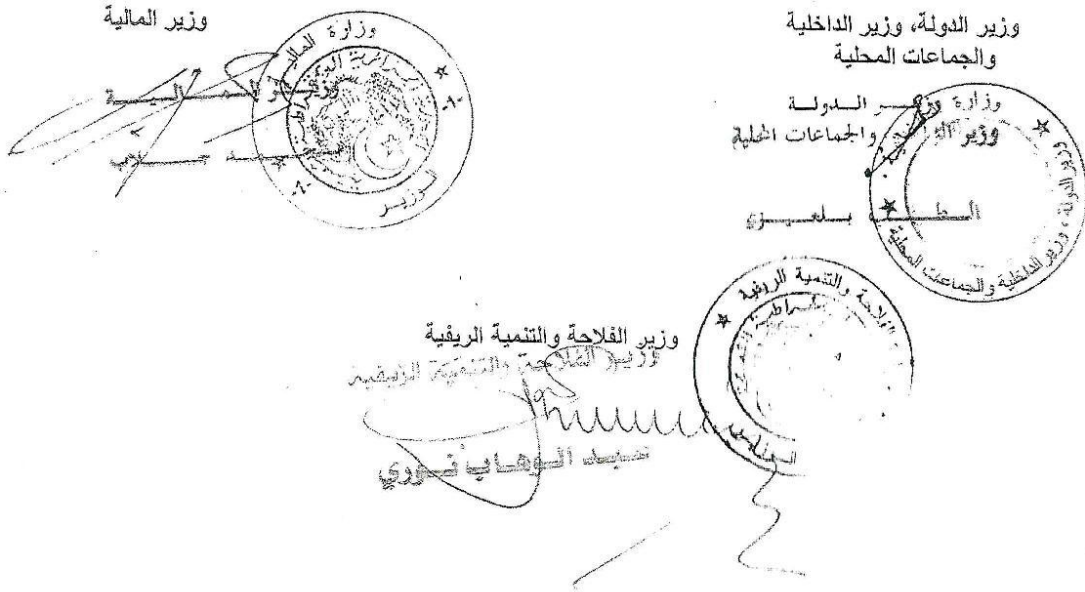 وزير الدولة، وزير الداخلية
والجماعات المحلية
وزارة
وزير الـدولـة
وزير الداخلية والجماعات المحلية
بـلـعـيـزي
وزير الدولة، وزير الداخلية والجماعات المحلية
وزير المالية
وزارة المالية
وزيـر الـمـالـيـة
جـلاب
الـوزيـر
-1-
-1-
وزير الفلاحة والتنمية الريفية
وزير الفلاحة والتنمية الريفية
عبد الوهاب نوري
الفلاحة والتنمية الريفية